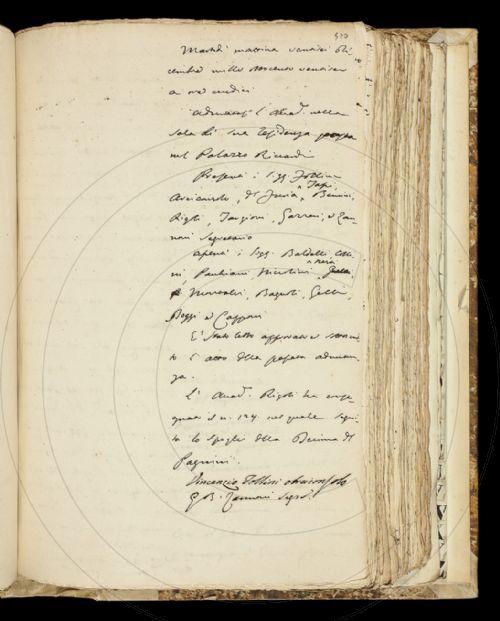 Martedì mattina ventisei di-
cembre mille ottocento ventisei
a ore undici
Adunatasi l'Accad.ª nella
Sala di sua residenza
nel Palazzo Riccardi
Presenti i Sigg. Follini
Arciconsolo, Del Furia, Bencini,
Rigoli, Targioni, Sarreni, e Zan-
noni Segretario
Assenti i Sigg. Baldelli, Colli-
ni, Panchiani, Nicolini,
Montalvi, Bagnoli, Gelli,
Poggi e Capponi
È stato letto approvato e sotto
to l'atto della passata adunan-
za.
L'Accad.º Rigoli ha conse-
gnato il n. 124 nel quale segui-
ta lo spoglio della Decima del
Pagnini.
Vincenzio Follini Arciconsolo
G. B. Zannoni Segret.